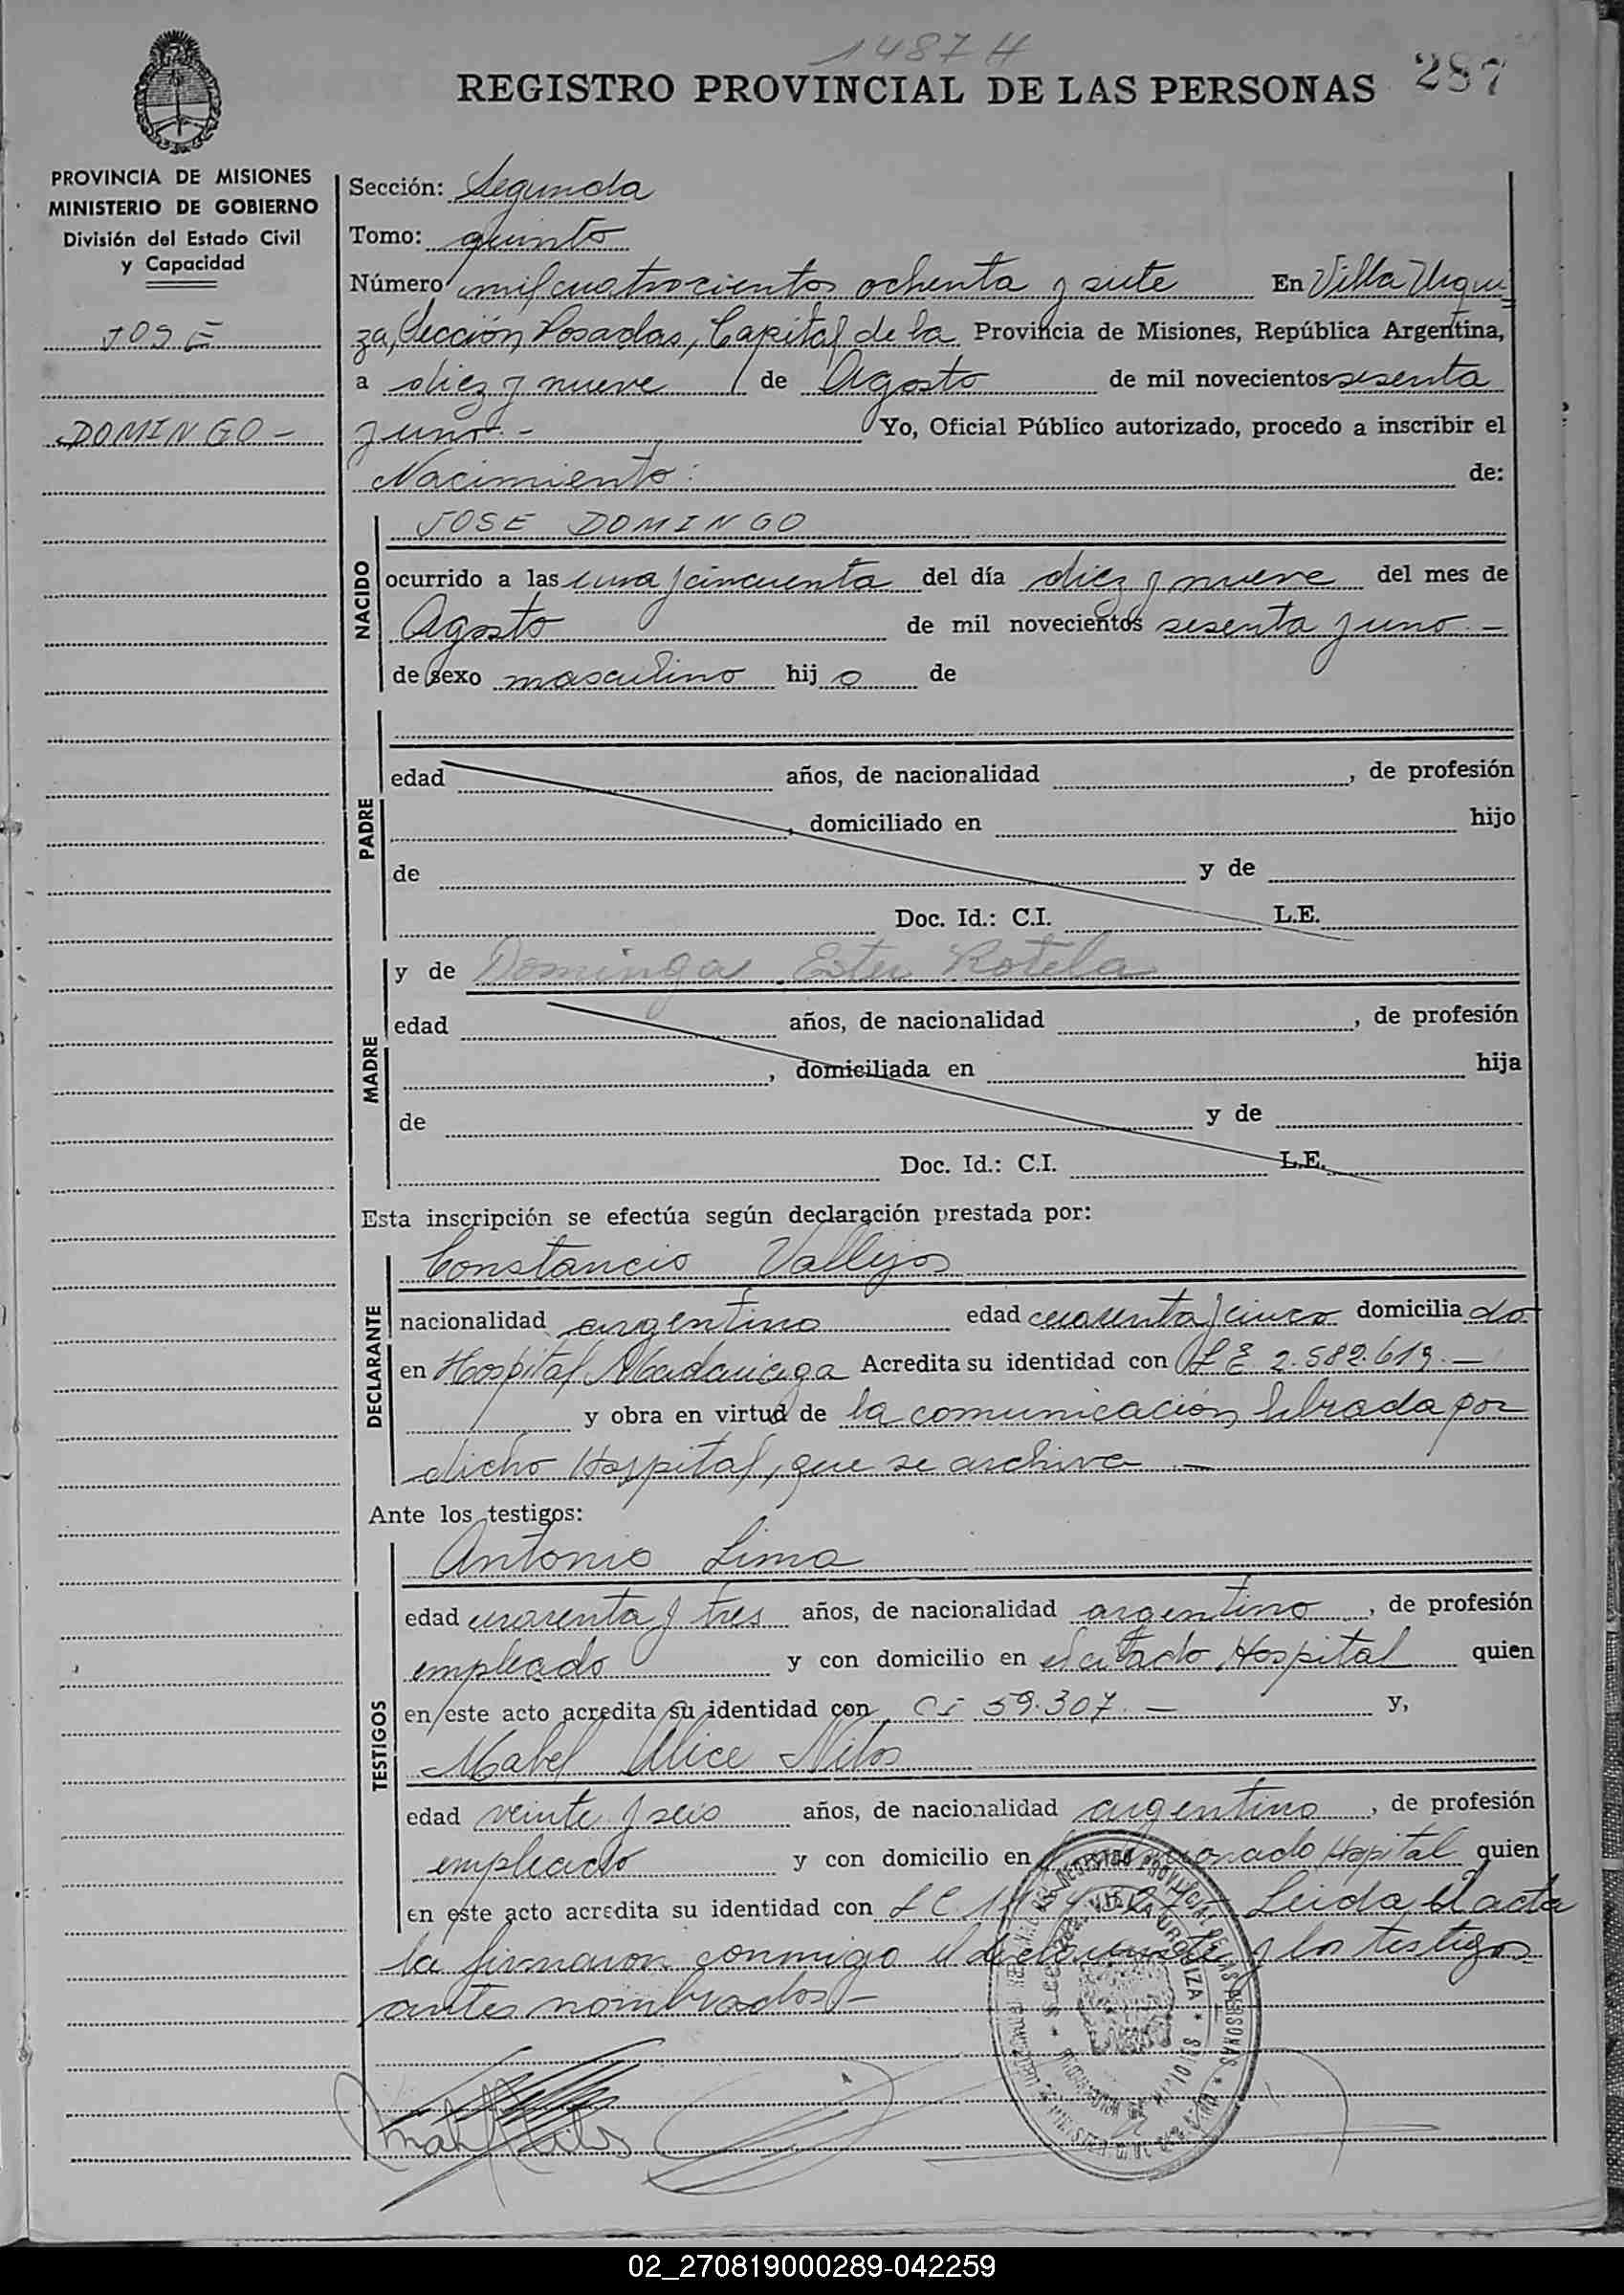 1487 H
REGISTRO PROVINCIAL DE LAS PERSONAS 287
PROVINCIA DE MISIONES
MINISTERIO DE GOBIERNO
División del Estado Civil
y Capacidad
JOSE
DOMINGO -
Sección: Segunda
Tomo: quinto
Número mil cuatrocientos ochenta y siete En Villa Urqui
za, Sección Posadas, Capital de la Provincia de Misiones, República Argentina,
a diez y nueve de Agosto de mil novecientos sesenta
y uno.- Yo, Oficial Público autorizado, procedo a inscribir el
Nacimiento: de:
NACIDO
JOSE DOMINGO
ocurrido a las una y cincuenta del día diez y nueve del mes de
Agosto de mil novecientos sesenta y uno.-
de sexo masculino hij o de
PADRE
edad años, de nacionalidad , de profesión
, domiciliado en hijo
de y de
Doc. Id.: C.I. L.E.
MADRE
y de Dominga Ester Rotela
edad años, de nacionalidad , de profesión
, domiciliada en hija
de y de
Doc. Id.: C.I. L.E.
Esta inscripción se efectúa según declaración prestada por:
DECLARANTE
Constancio Vallejos
nacionalidad argentino edad cuarenta y cinco domicilia do
en Hospital Madariaga Acredita su identidad con L E 2.582.619.-
y obra en virtud de la comunicación librada por
dicho Hospital, que se archiva.-
Ante los testigos:
TESTIGOS
Antonio Lima
edad cuarenta y tres años, de nacionalidad argentino , de profesión
empleado y con domicilio en el citado Hospital quien
en este acto acredita su identidad con CI 59.307.- y,
Mabel Alice Nilos
edad veinte y seis años, de nacionalidad argentino , de profesión
empleado y con domicilio en Hospital quien
en este acto acredita su identidad con L C Leida el acta
la firmaron conmigo el declarante y los testigos
antes nombrados.-
REGISTRO PROVINCIAL DE LAS PERSONAS
VILLA URQUIZA
02_270819000289-042259